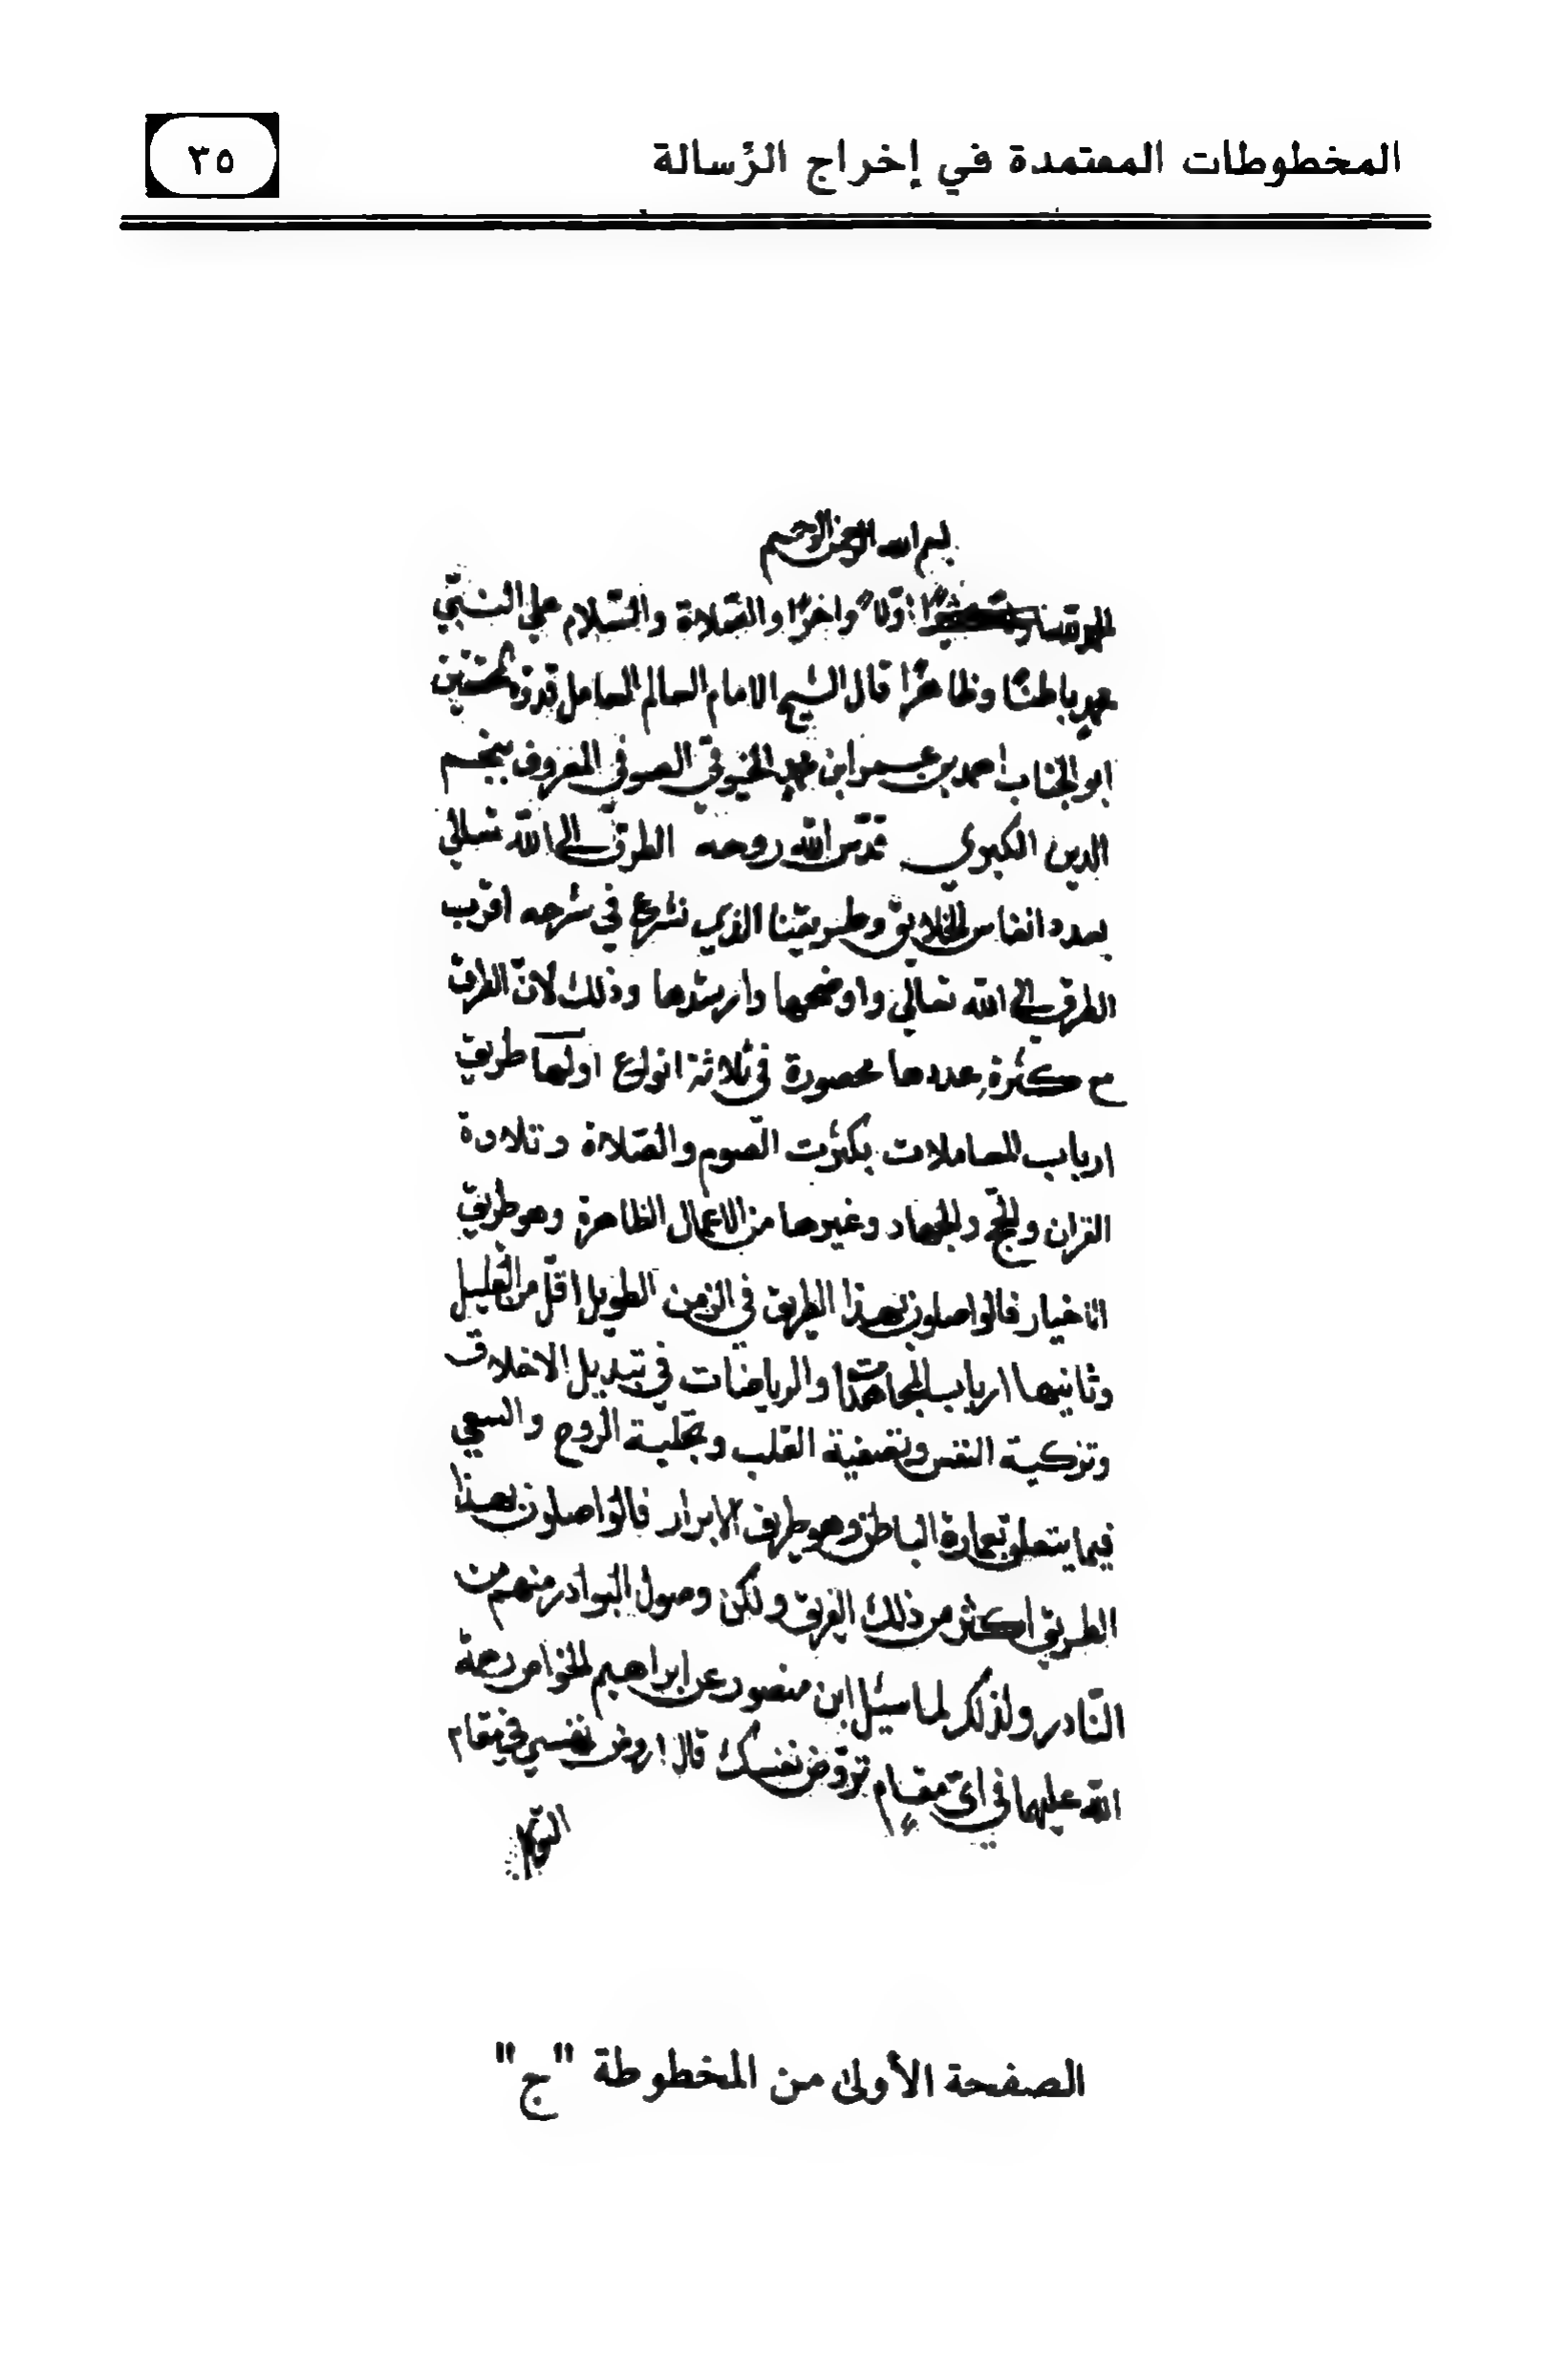 المخطوطات المعتمدة في إخراج الرِّسالة
٣٥
بسم الله الرحمن الرحيم
اوّلاً واخرًا والصّلاة والسّلام على النبيّ
محمد باطنًا وظاهرًا قال الشيخ الامام العالم العامل قدوة
ابو الجناب احمد بن عمر ابن محمد الخيوقي الصوفي المعروف بنجم
الدين الكبرى قدّس الله روحه الطرق الى الله تعالى
بعدد انفاس الخلايق وطريقنا الذي نشرع في شرحه اقرب
الطرق الى الله تعالى واوضحها وارشدها وذلك لانّ الطرق
مع كثرة عددها محصورة في ثلاثة انواع اولها طريق
ارباب المعاملات بكثرت الصّوم والصّلاة وتلاوة
القران والحجّ والجهاد وغيرها من الاعمال الظاهرة وهو طريق
الاخيار فالواصلون بهذا الطريق في الزمن الطويل اقلّ من القليل
وثانيها ارباب المجاهدات والرياضات في تبديل الاخلاق
وتزكية النفس وتصفية القلب وتجلية الروح والسعي
فيما يتعلق بعمارة الباطن وهو طريق الابرار فالواصلون بهذا
الطريق اكثر من ذلك الفريق ولكن وصول البوادر منهم من
النّادر ولذلك لما سئل ابن منصور عن ابراهيم الخواص رحمة
الله عليهما في ايّ مقام تروّض نفسك قال اروض نفسي في مقام
التوكل
الصفحة الأولى من المخطوطة "ج"